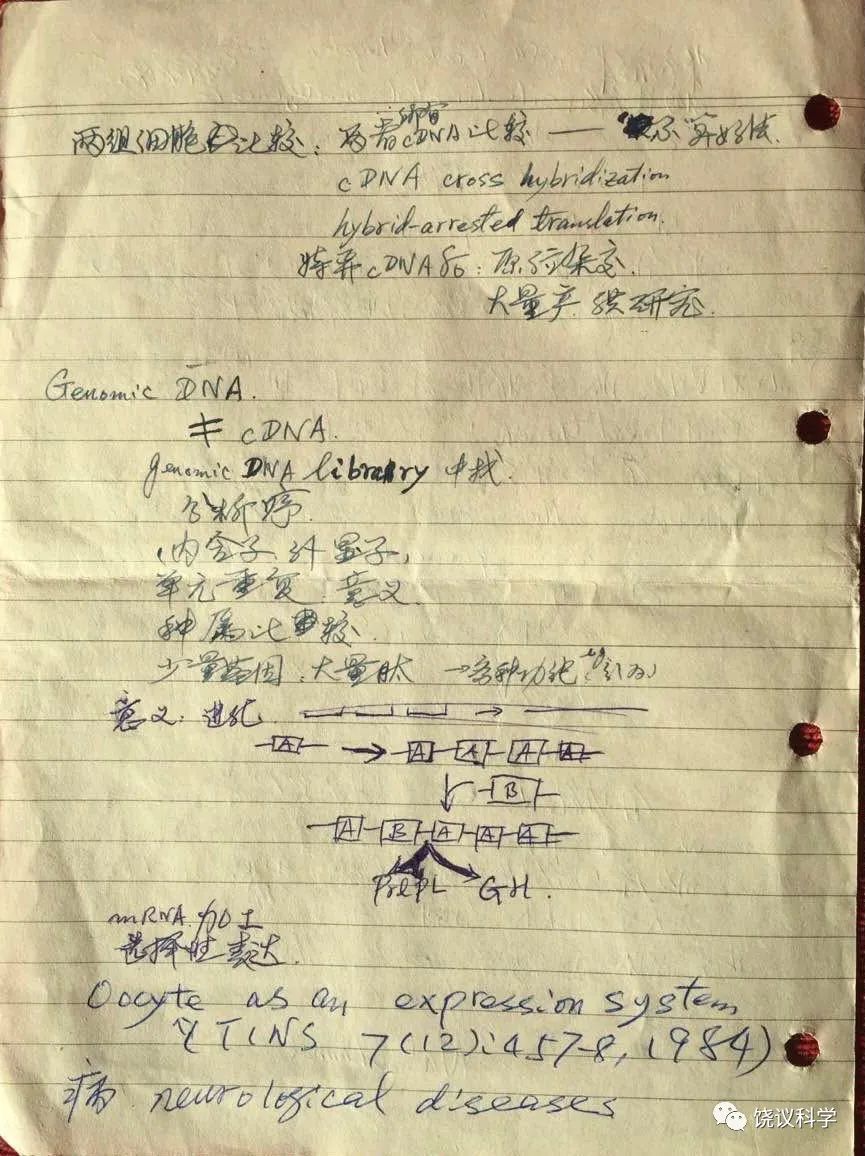 所有
两组细胞比较：两者cDNA比较 — 不算好法.
cDNA cross hybridization
hybrid-arrested translation.
特异cDNA后：原位杂交.
大量产 供研究.
Genomic DNA.
≠ cDNA.
genomic DNA library 中找.
分析序.
内含子、外显子，
单元重复. 意义.
种属比较.
少量基因，大量肽 → 多种功能
意义：进化. →
A → A A A A
B
A B A A A
PRL GH.
mRNA 加工
选择性表达.
Oocyte as an expression system
TINS 7(12):457-8, 1984)
病 neurological diseases
饶议科学